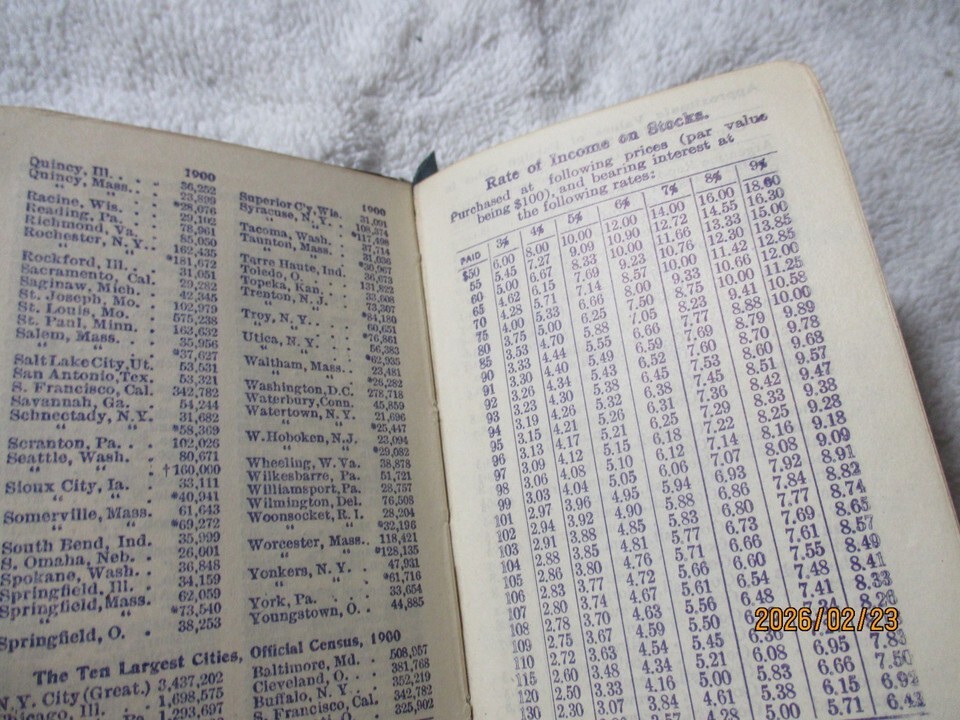 1900
Quincy, Ill. . . 36,252
Quincy, Mass. . 23,899
" " *28,076
Racine, Wis. . . 29,102
Reading, Pa. . 78,961
Richmond, Va. . 85,050
Rochester, N. Y. . 162,435
" " *181,672
Rockford, Ill. . . 31,051
Sacramento, Cal. 29,282
Saginaw, Mich. . 42,345
St. Joseph, Mo. . 102,979
St. Louis, Mo. . 575,238
St. Paul, Minn. . 163,632
Salem, Mass. . 35,956
" " *37,627
Salt Lake City, Ut. 53,531
San Antonio, Tex. 53,321
S. Francisco, Cal. 342,782
Savannah, Ga. . 54,244
Schnectady, N. Y. 31,682
" " *58,369
Scranton, Pa. . . 102,026
Seattle, Wash. . 80,671
" " †160,000
Sioux City, Ia. . 33,111
" " *40,941
Somerville, Mass. 61,643
" " *69,272
South Bend, Ind. 35,999
S. Omaha, Neb. . 26,001
Spokane, Wash. . 36,848
Springfield, Ill. . 34,159
Springfield, Mass. 62,059
" " *73,540
Springfield, O. . 38,253
1900
Superior C'y, Wis. 31,091
Syracuse, N. Y. . 108,374
" " *117,498
Tacoma, Wash. . 37,714
Taunton, Mass. . 31,036
" " *30,967
Tarre Haute, Ind. 36,673
Toledo, O. . . 131,822
Topeka, Kan. . 33,608
Trenton, N. J. . 73,307
" " *84,180
Troy, N. Y. . . 60,651
" " *76,861
Utica, N. Y. . . 56,383
" " *62,935
Waltham, Mass. . 23,481
" " *26,282
Washington, D.C. 278,718
Waterbury, Conn. 45,859
Watertown, N. Y. 21,696
" " *25,447
W. Hoboken, N.J. 23,094
" " *29,082
Wheeling, W. Va. 38,878
Wilkesbarre, Pa. 51,721
Williamsport, Pa. 28,757
Wilmington, Del. 76,508
Woonsocket, R. I. 28,204
" " *32,196
Worcester, Mass. . 118,421
" " *128,135
Yonkers, N. Y. . 47,931
" " *61,716
York, Pa. . . 33,654
Youngstown, O. . 44,885
The Ten Largest Cities, Official Census, 1900
N. Y. City (Great.) 3,437,202
Chicago, Ill. 1,698,575
Pa. 1,293,697
Baltimore, Md. . 508,957
Cleveland, O. . . 381,768
Buffalo, N. Y. . 352,219
S. Francisco, Cal. 342,782
325,902
Rate of Income on Stocks.
Purchased at following prices (par value
being $100), and bearing interest at
the following rates:
PAID 3% 4% 5% 6% 7% 8% 9%
$50 6.00 8.00 10.00 12.00 14.00 16.00 18.00
55 5.45 7.27 9.09 10.90 12.72 14.55 16.30
60 5.00 6.67 8.33 10.00 11.66 13.33 15.00
65 4.62 6.15 7.69 9.23 10.76 12.30 13.85
70 4.28 5.71 7.14 8.57 10.00 11.42 12.85
75 4.00 5.33 6.66 8.00 9.33 10.66 12.00
80 3.75 5.00 6.25 7.50 8.75 10.00 11.25
85 3.53 4.70 5.88 7.05 8.23 9.41 10.58
90 3.33 4.44 5.55 6.66 7.77 8.88 10.00
91 3.30 4.40 5.49 6.59 7.69 8.79 9.89
92 3.26 4.34 5.43 6.52 7.60 8.70 9.78
93 3.23 4.30 5.38 6.45 7.53 8.60 9.68
94 3.19 4.26 5.32 6.38 7.45 8.51 9.57
95 3.15 4.21 5.26 6.31 7.36 8.42 9.47
96 3.13 4.17 5.21 6.25 7.29 8.33 9.38
97 3.09 4.12 5.15 6.18 7.22 8.25 9.28
98 3.06 4.08 5.10 6.12 7.14 8.16 9.18
99 3.03 4.04 5.05 6.06 7.07 8.08 9.09
101 2.97 3.96 4.95 5.94 6.93 7.92 8.91
102 2.94 3.92 4.90 5.88 6.86 7.84 8.82
103 2.91 3.88 4.85 5.83 6.80 7.77 8.74
104 2.88 3.85 4.81 5.77 6.73 7.69 8.65
105 2.86 3.80 4.76 5.71 6.66 7.61 8.57
106 2.83 3.77 4.72 5.66 6.60 7.55 8.49
107 2.80 3.74 4.67 5.61 6.54 7.48 8.41
108 2.78 3.70 4.63 5.56 6.48 7.41 8.33
109 2.75 3.67 4.59 5.50 8.26
110 2.72 3.63 4.54 5.45 6.36
115 2.60 3.48 4.34 5.21 6.08 6.95 7.83
120 2.50 3.33 4.16 5.00 5.83 6.66 7.50
130 2.30 3.07 3.84 4.61 5.38 6.15 6.92
4.28 5.00 5.71 6.42
2026/02/23